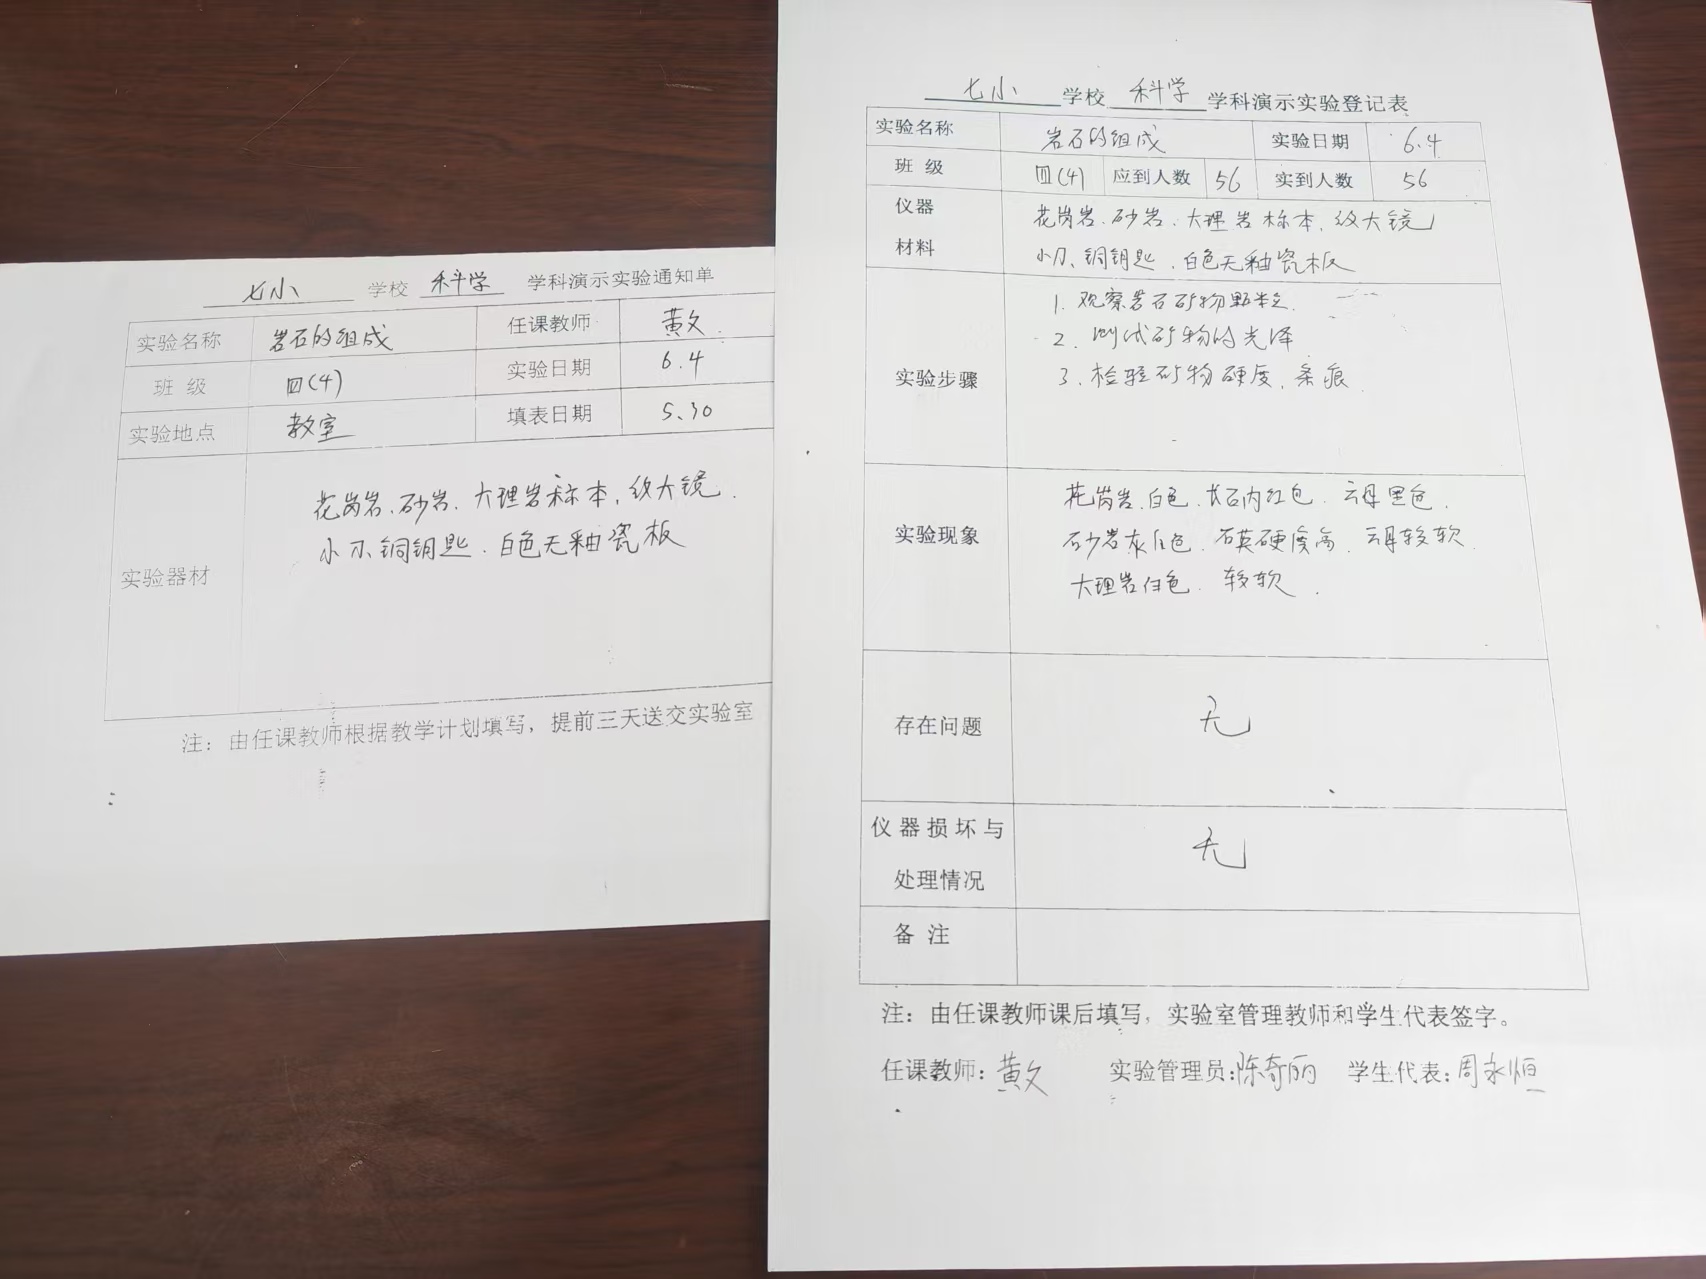 七小 学校 科学 学科演示实验通知单
实验名称 岩石的组成 任课教师 黄文
班 级 四(4) 实验日期 6.4
实验地点 教室 填表日期 5.30
实验器材
花岗岩、砂岩、大理岩标本,放大镜.
小刀、铜钥匙、白色无釉瓷板
注:由任课教师根据教学计划填写,提前三天送交实验室
七小 学校 科学 学科演示实验登记表
实验名称 岩石的组成 实验日期 6.4
班 级 四(4) 应到人数 56 实到人数 56
仪器
材料
花岗岩、砂岩、大理岩标本,放大镜
小刀、铜钥匙、白色无釉瓷板
实验步骤
1. 观察岩石矿物颗粒.
2. 测试矿物的光泽
3. 检验矿物硬度、条痕.
实验现象
花岗岩、白色、长石肉红色、云母黑色.
砂岩灰白色、石英硬度高、云母较软
大理岩白色、较软.
存在问题 无
仪器损坏与
处理情况
无
备 注
注:由任课教师课后填写,实验室管理教师和学生代表签字。
任课教师:黄文 实验管理员:陈奇丽 学生代表:周永恒